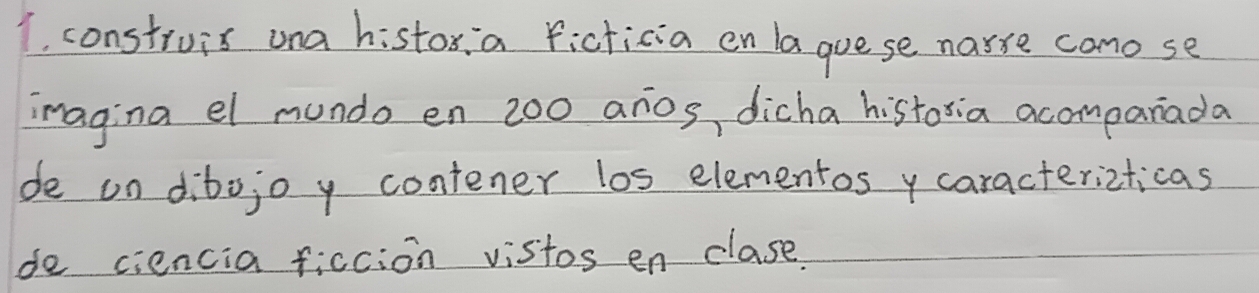 1. construir una historia ficticia en la que se narre como se
imagina el mundo en 200 años, dicha historia acompañada
de un dibujo y contener los elementos y caracterizticas
de ciencia ficción vistos en clase.